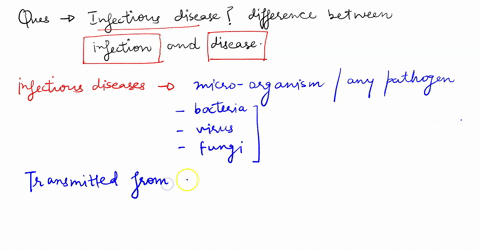 Ques → Infectious disease? difference between
infection and disease.
infectious diseases → micro-organism / any pathogen
- bacteria
- virus
- fungi
Transmitted from